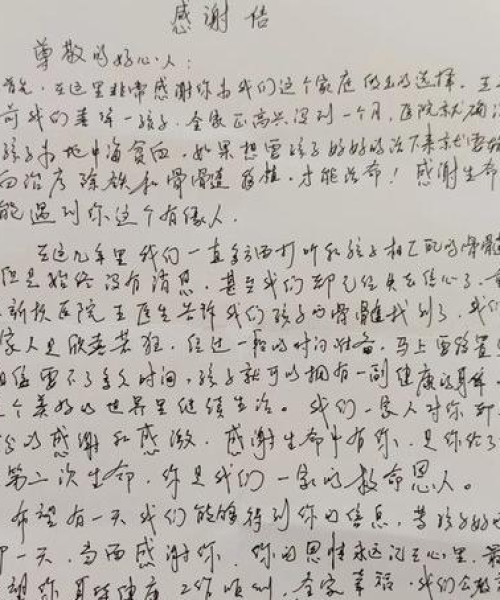 感谢信
尊敬的好心人：
首先，在这里非常感谢你为我们这个家庭做出的选择，
前我们喜降一孩子，全家正高兴没到一个月，医院就确
孩子为地中海贫血，如果想要孩子好好的活下来就要
向治疗除铁和骨骨髓移植，才能活命！感谢生命
能遇到你这个有缘人．
在这几年里我们一直多方面打听和孩子相匹配的骨髓
但是始终没有消息，甚至我们都已经失去信心了．
新桥医院王医生告诉我们孩子的骨髓找到了，我们
家人是欣喜若狂，经过一段的时间准备，马上要移置
相信要不了多久时间，孩子就可以拥有一副健康的身体
个美好的世界里继续生活。我们一家人对你
的感谢和感激，感谢生命中有你，是你给了
第二次生命，你是我们一家的救命恩人。
希望有一天我们能够得到你的信息，等孩子好
那一天，当面感谢你，你的恩情永远记在心里，最
望你身体健康，工作顺利，全家幸福，我们会